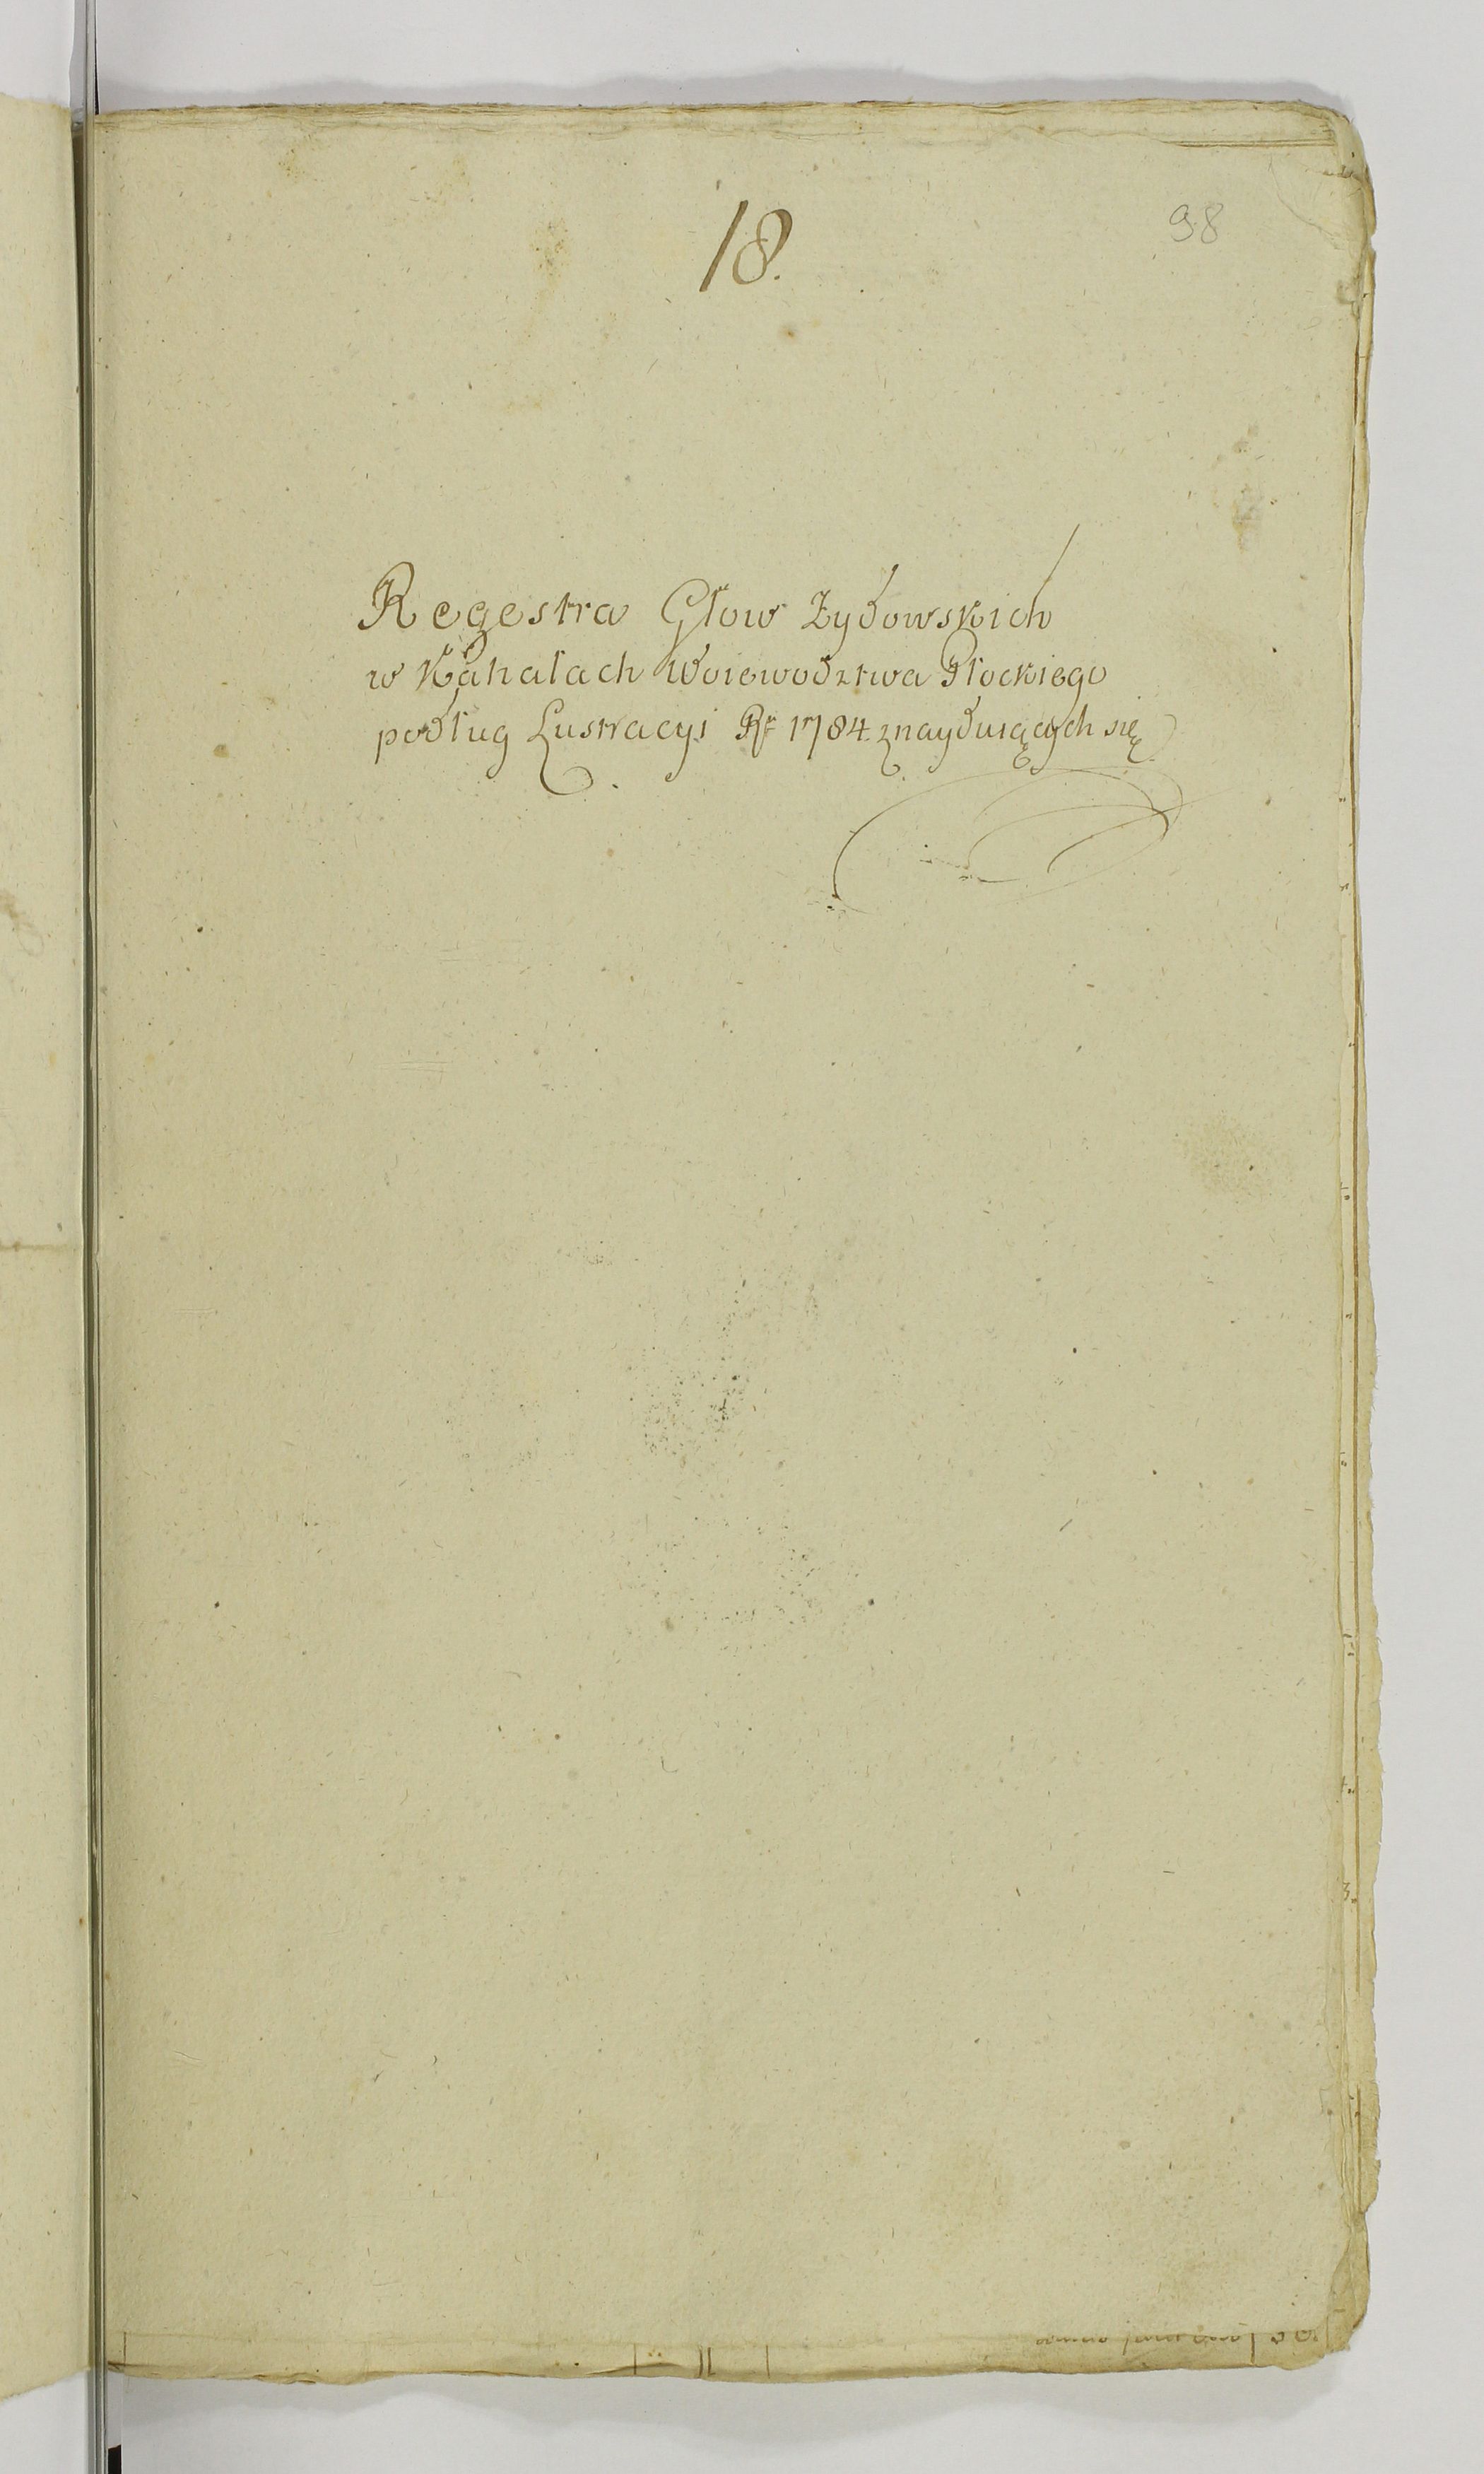 18.
98
Regestra Głow Zydowskich
w Kahałach Woiewodztwa Płockiego
podług Lustracyi Rf 1784. znayduiących się